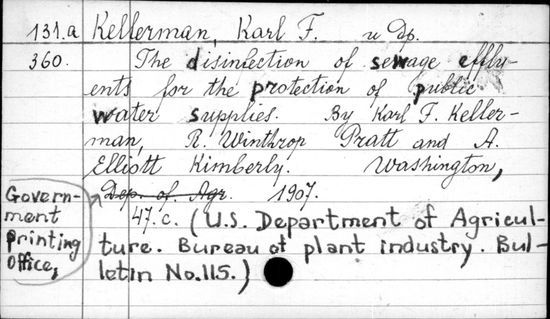 131.a Kellerman, Karl F. u Dp.
360. The disinfection of sewage efflu-
ents for the protection of public
water supplies. By Karl F. Keller-
man, R. Winthrop Pratt and A.
Elliott Kimberly. Washington,
Dep. of Agr. 1907.
Govern-
ment
Printing
Office,
47.c. (U.S. Department of Agricul-
ture. Bureau of plant industry. Bul-
letin No.115.)